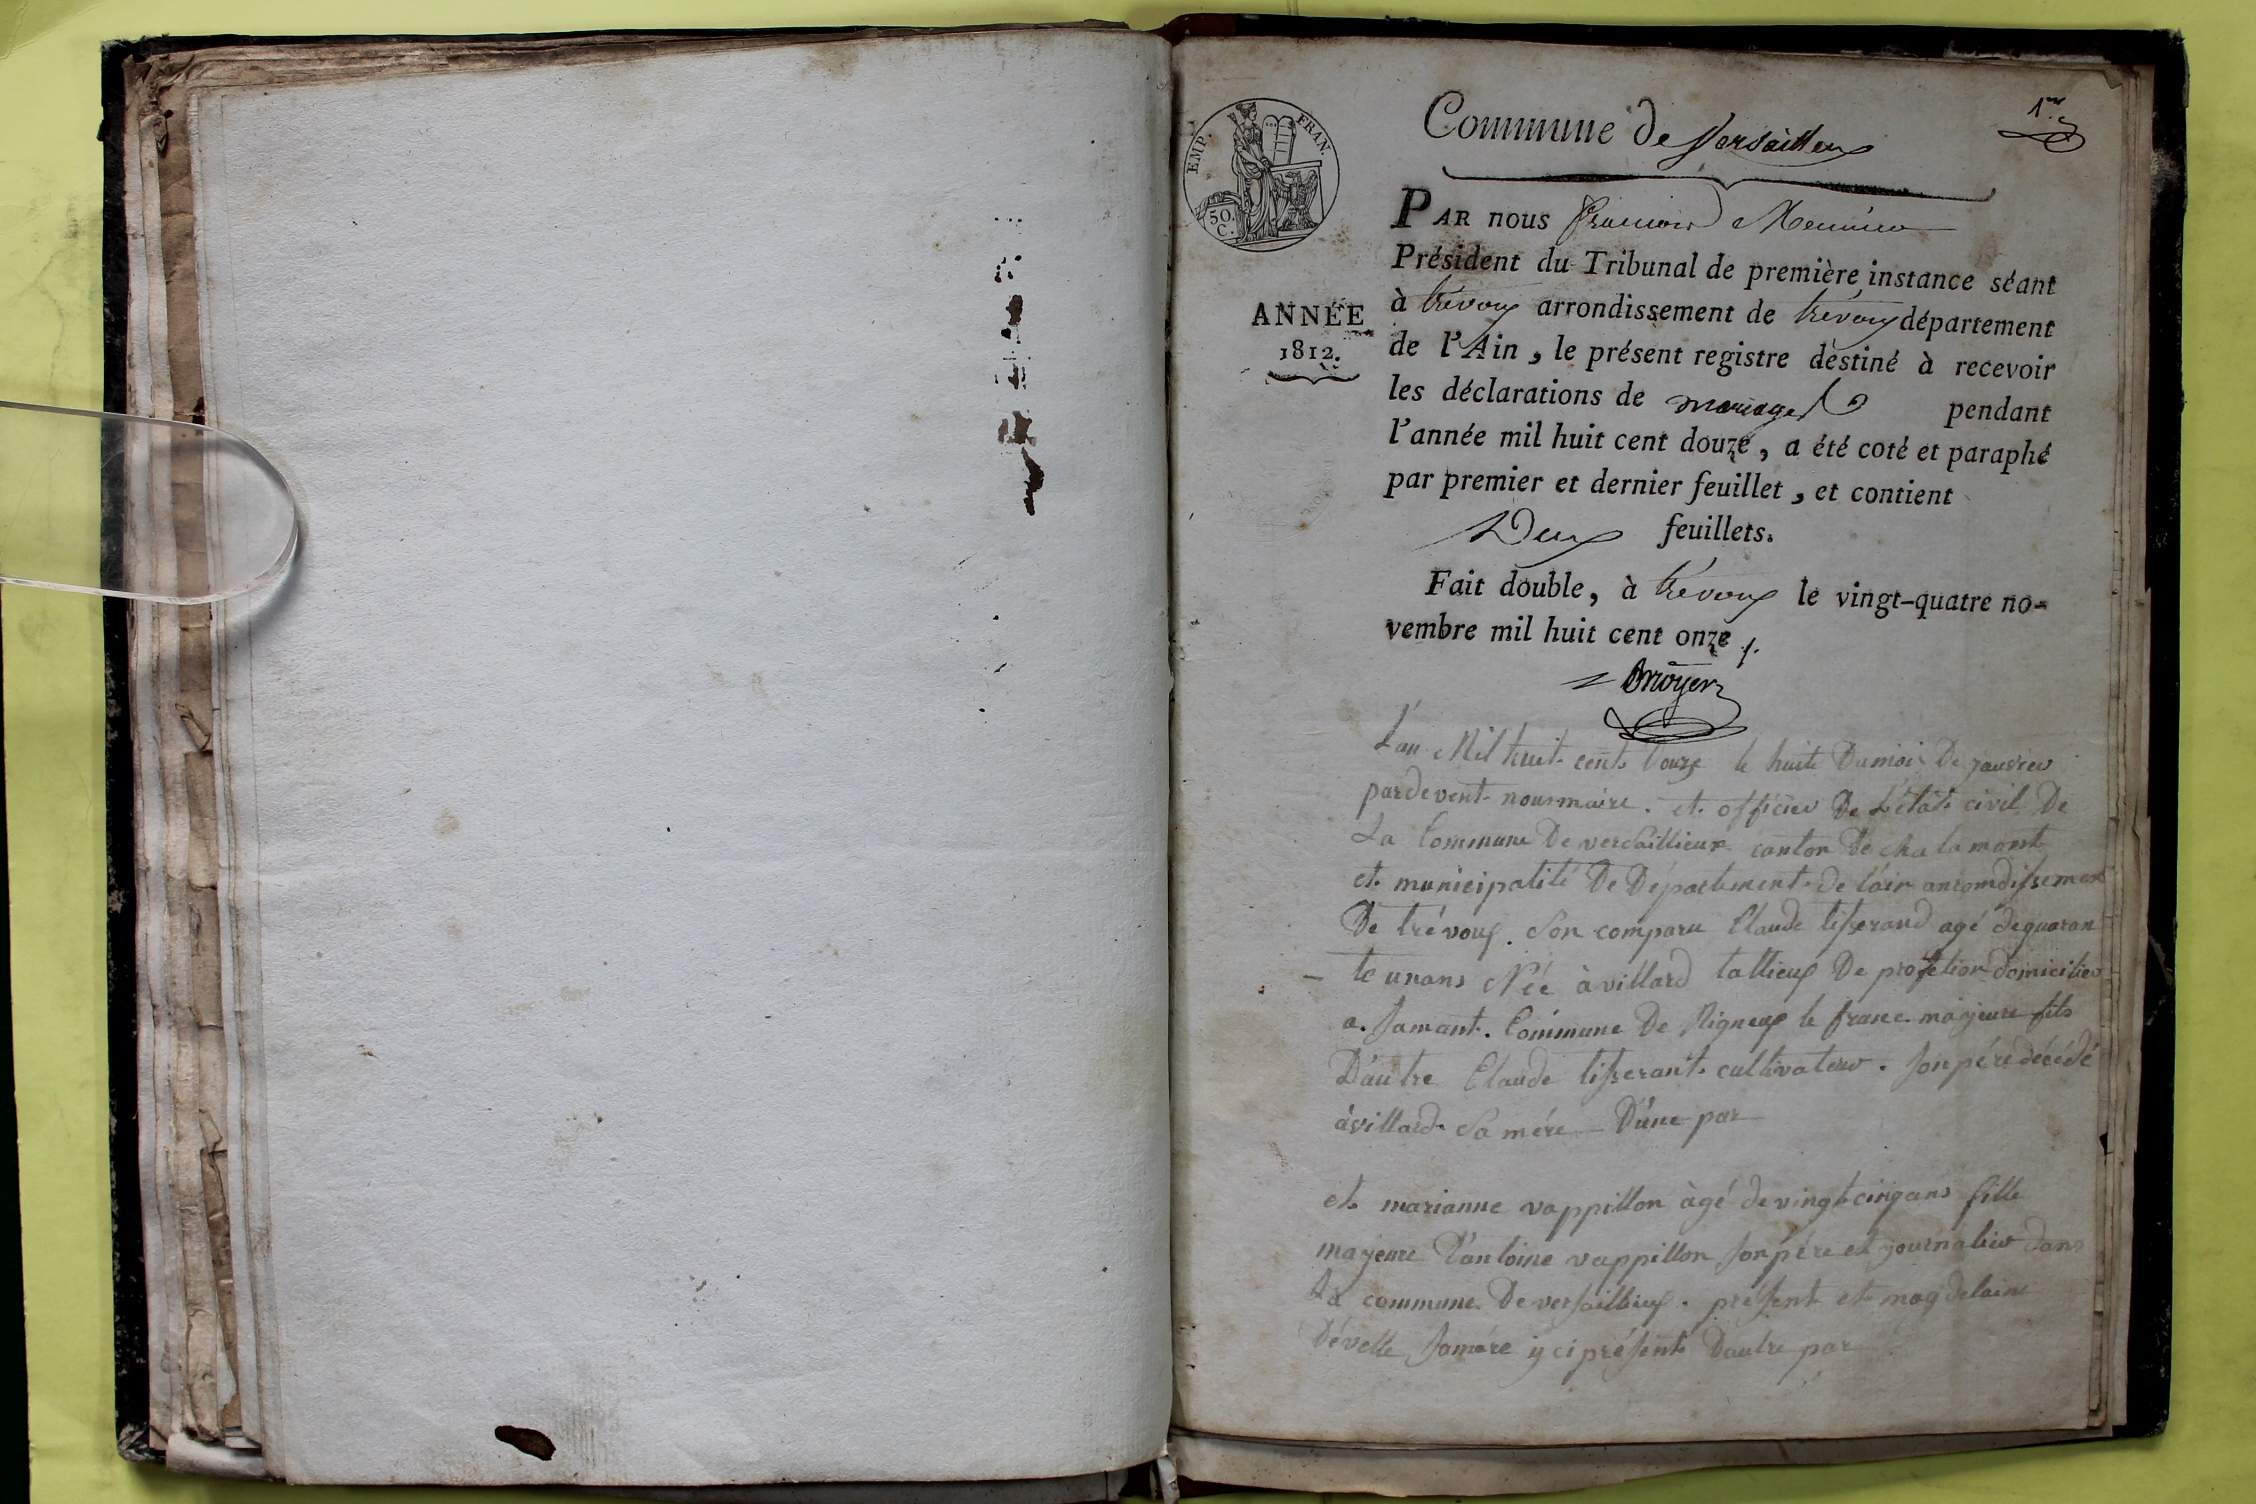 1er
Commune de Versailleux
EMP. FRAN.
50. C.
PAR nous
Président du Tribunal de première instance séant
ANNÉE
1812.
à trévoux arrondissement de trévoux département
de l'Ain, le présent registre destiné à recevoir
les déclarations de mariages pendant
l'année mil huit cent douze, a été coté et paraphé
par premier et dernier feuillet, et contient
Deux feuillets.
Fait double, à trévoux le vingt-quatre no-
vembre mil huit cent onze
L'an Mil huit cent douze le huite Dumois De janvier
pardevent nous maire. et officier De L'état civil De
La Commune De versaillieux canton De chalamont
et municipalité De Département de l'ain arromdissement
De trévoux. Son comparu Claude tisserand agé de quaran
te unans Née à villard tallieux De profetion domicilier
a. samant. Commune De Rigneux le franc majeure fils
D'autre Claude tisserant cultivateur. son pére décédé
à villard Sa mére D'une par
et marianne vappillon àgé de vingt cinq ans fille
majeure D'antoine vappillon son pére et journalier dans
La commune De versaillieux. présent et magdelaine
Dévelle samére y ci présente Dautre par